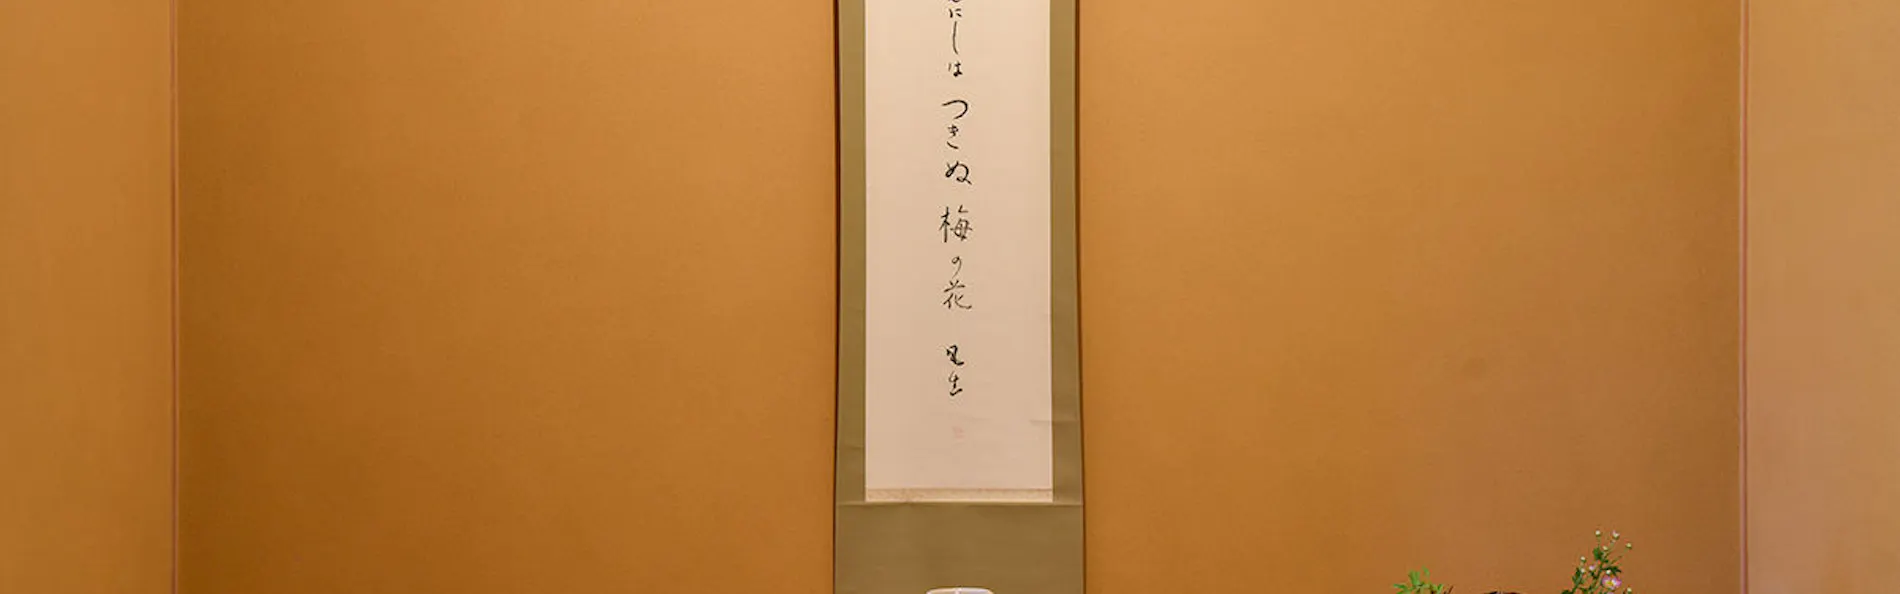 にしはつきぬ梅の花 風生